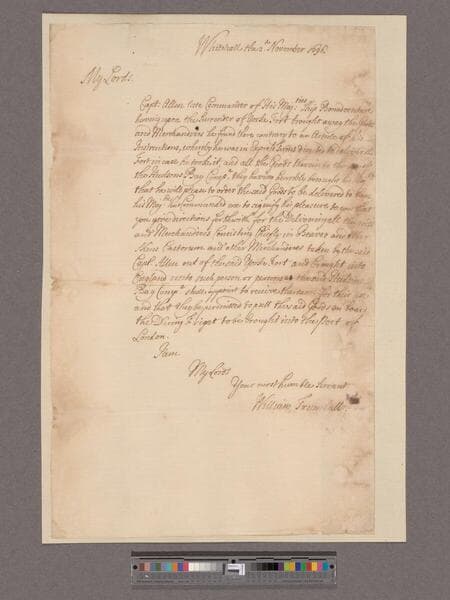 Whitehall the 2th November 1696.
My Lords.
Capt: Allen late Commander of His Majties Ship Bonadventure
having upon the Surrender of Yorke Fort brought away the
and Merchandizes he found there contrary to an Article of his
Instructions, whereby he was in Express Terms directed to
Fort in case he tooke it, and all the Goods therein to the
the Hudsons Bay Compa they having humbly
that he will please to order the said Goods to be delivered to them
his Majty has Commanded me to signify his pleasure to
you give directions forthwith for the
and Merchandizes Consisting Chiefly in Beaver and other
Skins Castorum and other Merchandizes taken by the said
Capt. Allen out of the said Yorke Fort and brought into
England unto such person or persons as the said Hudsons
Bay Compa shall appoint to receive the same for their use
and that they be permitted to putt the said Goods on board
the to be brought into the Port of
London.
I am
My Lords
Your most humble Servant
William Trumbull.